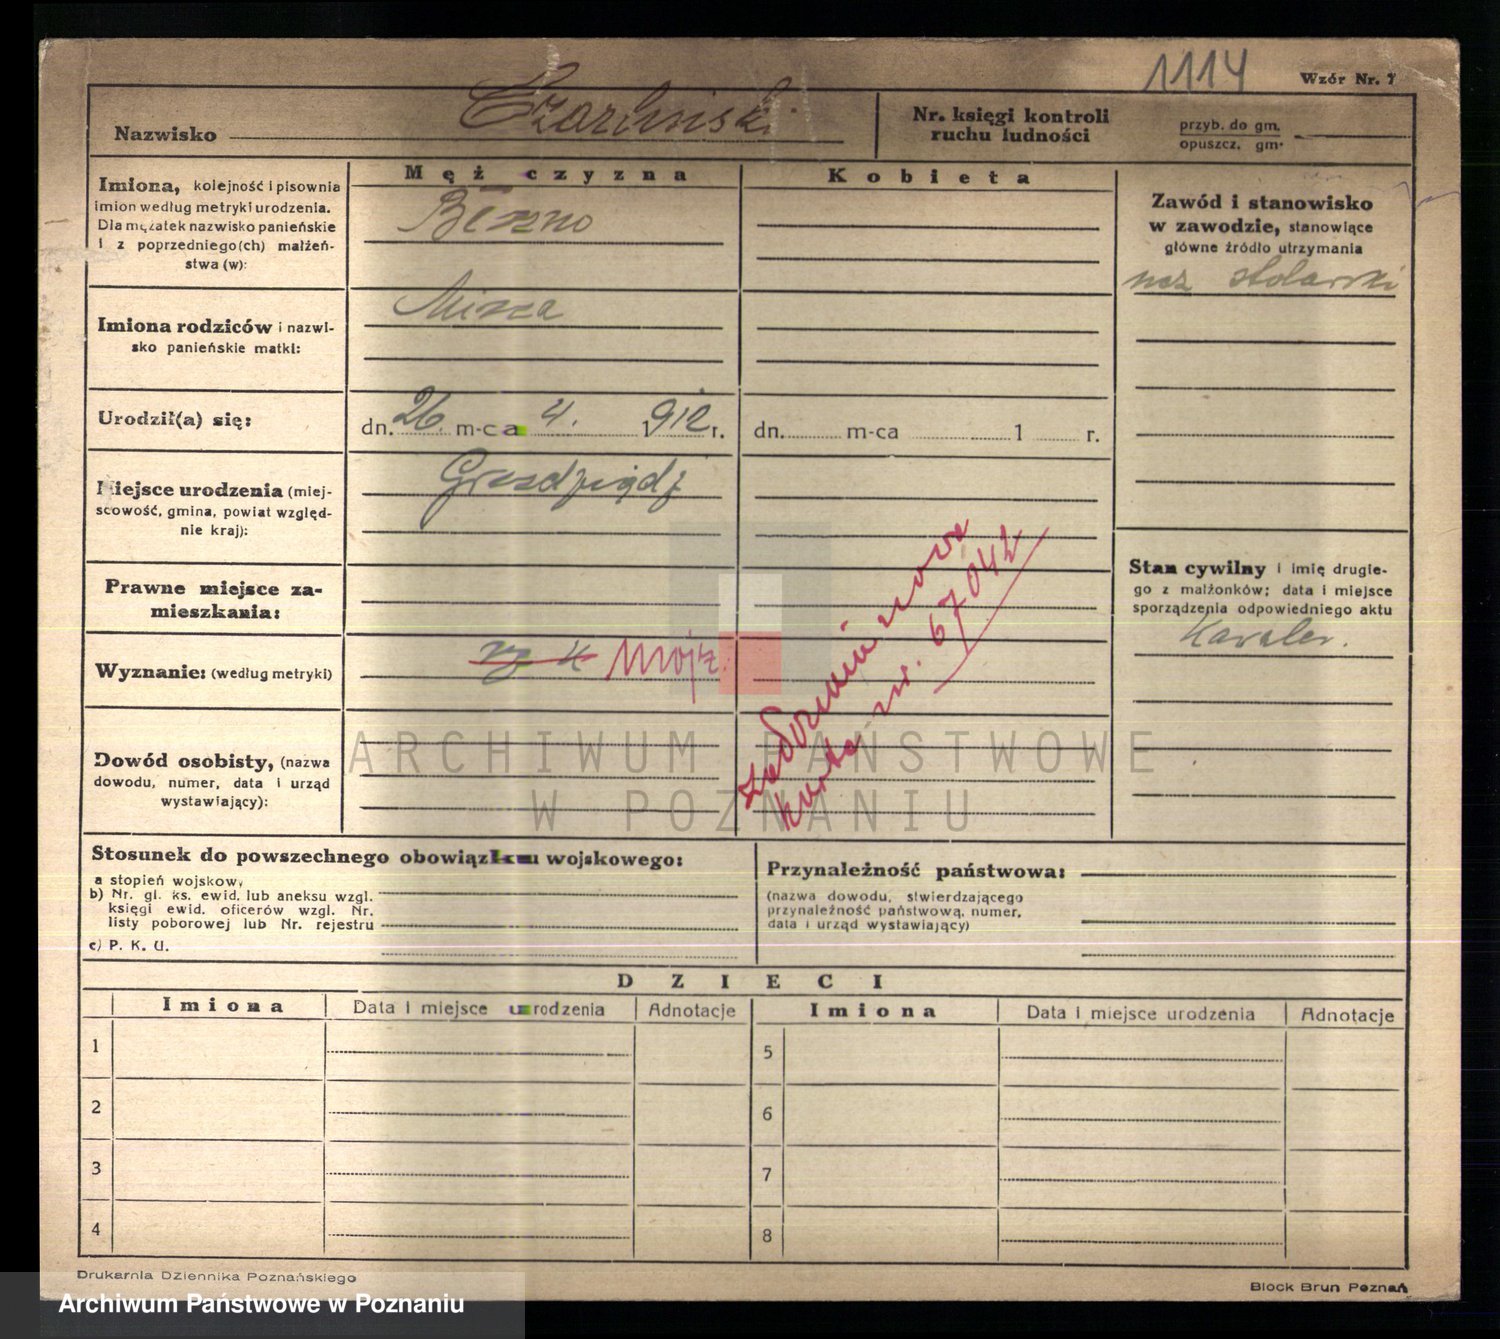 1114
Wzór Nr. 7
Nazwisko
Nr. księgi kontroli
ruchu ludności
przyb. do gm.
opuszcz. gm.
Mężczyzna
Kobieta
Imiona, kolejność i pisownia
imion według metryki urodzenia.
Dla mężatek nazwisko panieńskie
i z poprzedniego(ch) małżeń-
stwa (w):
Zawód i stanowisko
w zawodzie, stanowiące
główne źródło utrzymania
stolarski
Imiona rodziców i nazwi-
sko panieńskie matki:
Urodził(a) się:
dn. 26. m-ca 4. 1912 r.
dn. m-ca 1 r.
Miejsce urodzenia (miej-
scowość, gmina, powiat względ-
nie kraj):
Prawne miejsce za-
mieszkania:
Stan cywilny i imię drugie-
go z małżonków; data i miejsce
sporządzenia odpowiedniego aktu
Kawaler.
Wyznanie: (według metryki)
mojż.
nowa
karta nr. 67042
Dowód osobisty, (nazwa
dowodu, numer, data i urząd
wystawiający):
ARCHIWUM PAŃSTWOWE
W POZNANIU
Stosunek do powszechnego obowiązku wojskowego:
a stopień wojskow,
b) Nr. gl. ks. ewid. lub aneksu wzgl.
księgi ewid. oficerów wzgl. Nr.
listy poborowej lub Nr. rejestru
c) P. K. U.
Przynależność państwowa:
(nazwa dowodu, stwierdzającego
przynależność państwową, numer,
data i urząd wystawiający)
DZIECI
Imiona Data i miejsce urodzenia Adnotacje Imiona Data i miejsce urodzenia Adnotacje
1 5
2 6
3 7
4 8
Drukarnia Dziennika Poznańskiego
Block Brun Poznań
Archiwum Państwowe w Poznaniu